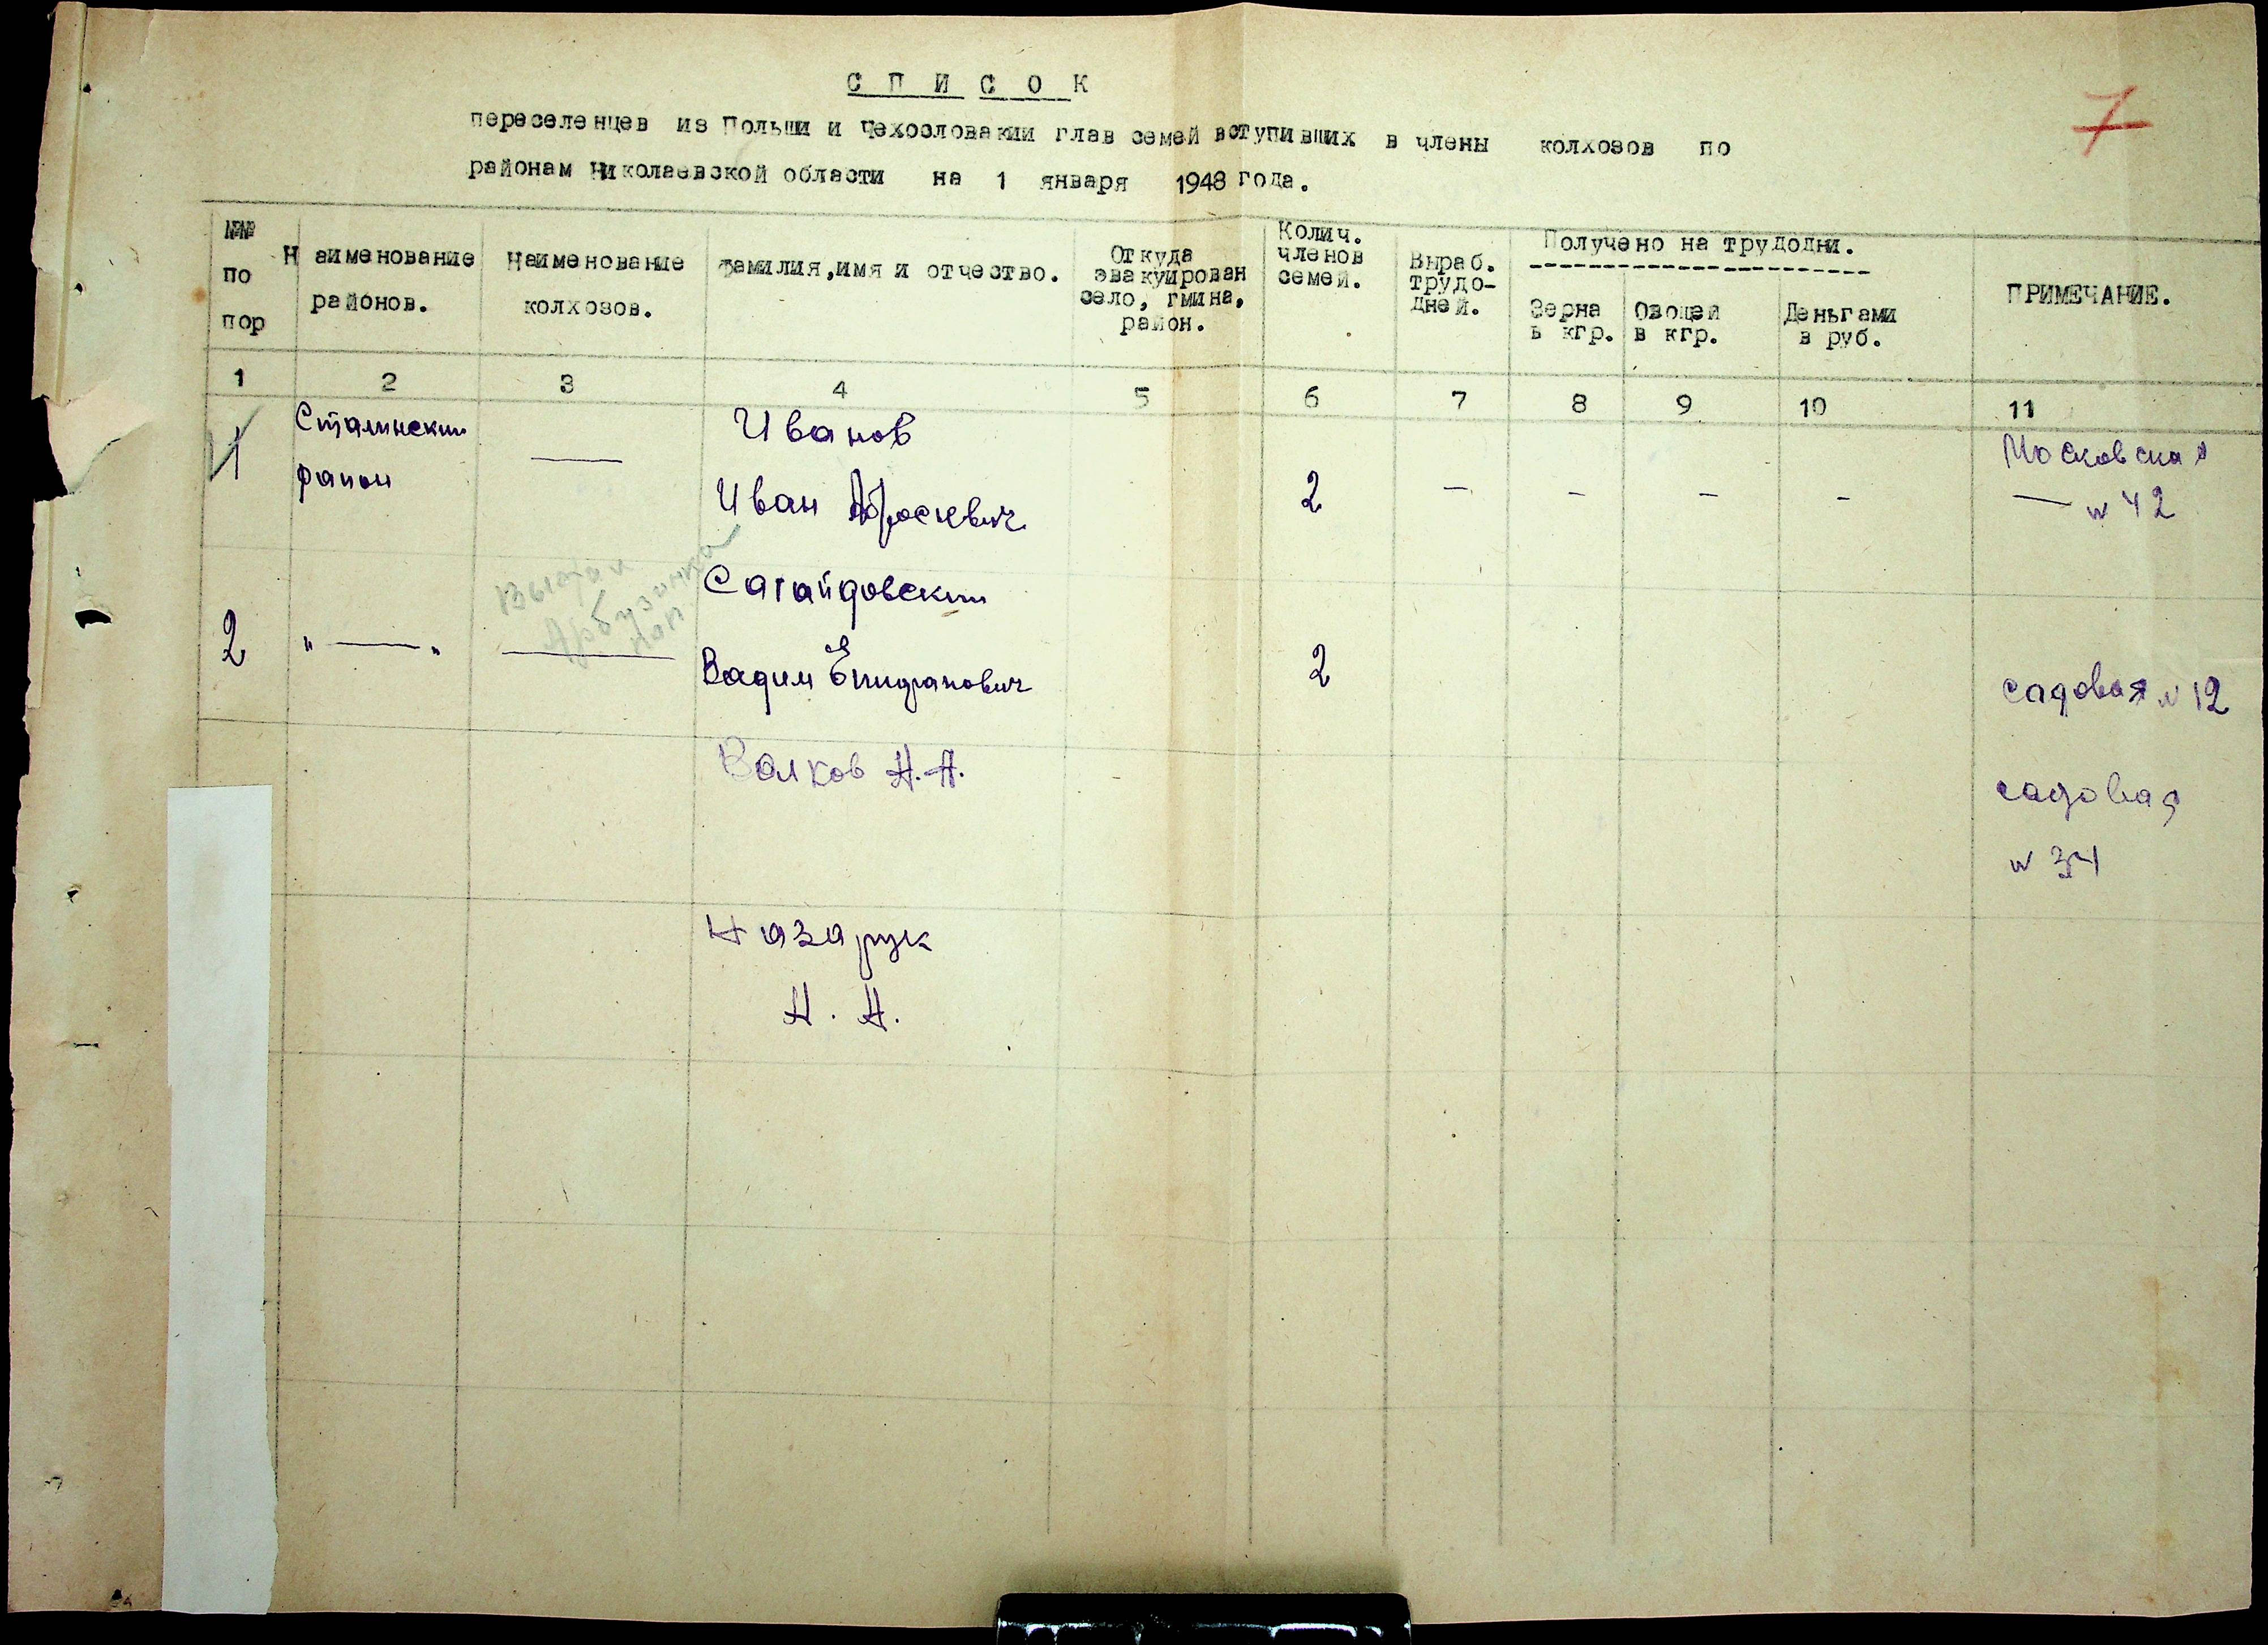 С П И С О К
7
переселенцев из Польши и Чехословакии глав семей вступивших в члены колхозов по
районам Николаевской области на 1 января 1948 года.
№№ по пор
Наименование районов.
Наименование колхозов.
Фамилия, имя и отчество.
Откуда эвакуирован село, гмина, район.
Колич. членов семей.
Выраб. трудо- дней.
Получено на трудодни.
Зерна в кгр.
Овощей в кгр.
Деньгами в руб.
ПРИМЕЧАНИЕ.
1 2 3 4 5 6 7 8 9 10 11
1 Сталинский — Иванов Московская
район Иван 2 - - - - — № 42
Выехал
Арбузинка
Сагайдовский
2 "—" — Вадим Епифанович 2 садовая № 12
Волков Н. Н. садовая
№ 34
Назарук
Н. Н.